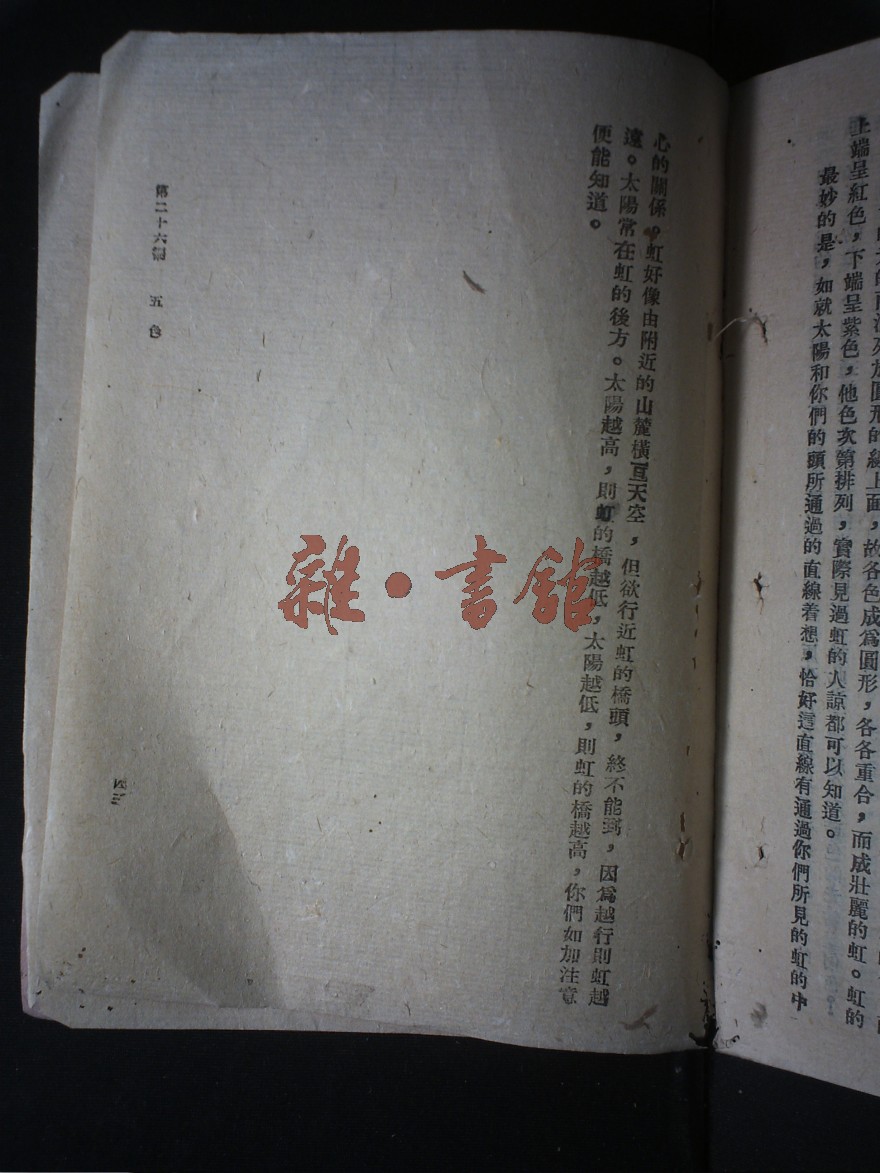 上端呈紅色，下端呈紫色，他色次第排列，實際見過虹的人諒都可以知道。
最妙的是，如就太陽和你們的頭所通過的直線着想，恰好這直線有通過你們所見的虹的中
心的關係。虹好像由附近的山麓橫亘天空，但欲行近虹的橋頭，終不能到，因爲越行則虹越
遠。太陽常在虹的後方。太陽越高，則虹的橋越低，太陽越低，則虹的橋越高，你們如加注意
便能知道。
第二十六編 五色
三四
雜·書館